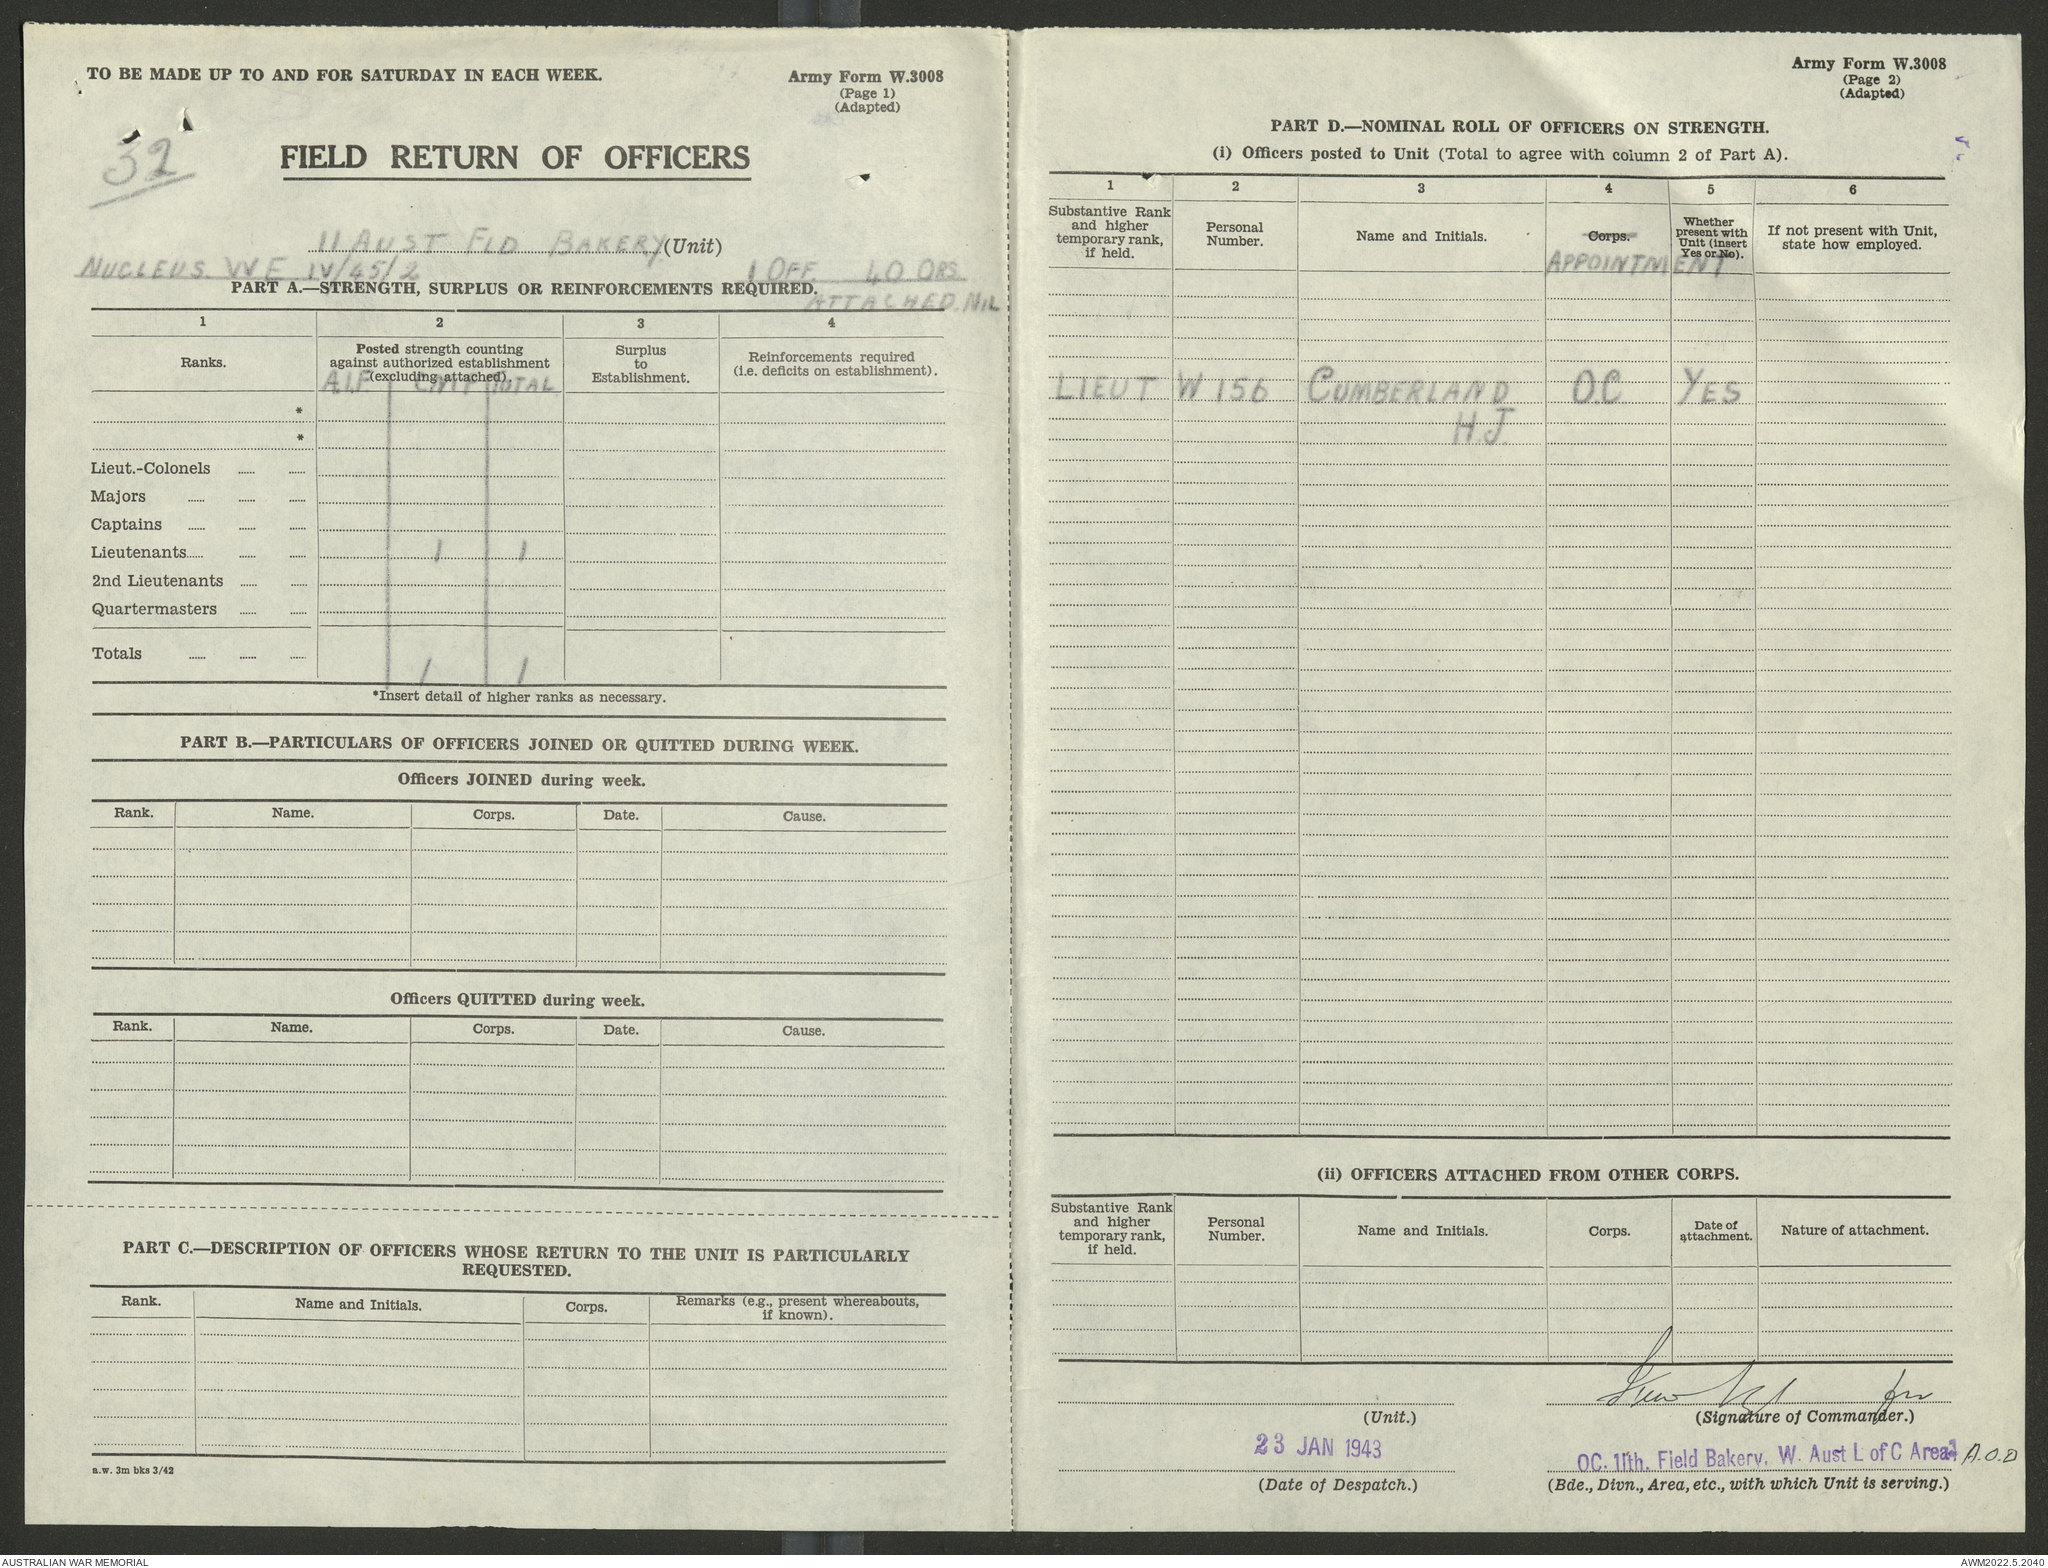 TO BE MADE UP TO AND FOR SATURDAY IN EACH WEEK.
Army Form W.3008
(Page 1)
(Adapted)
32
FIELD RETURN OF OFFICERS
11 AUST FLD BAKERY (Unit)
NUCLEUS WE IV/45/2 1 OFF. 40 ORS.
PART A.—STRENGTH, SURPLUS OR REINFORCEMENTS REQUIRED.
ATTACHED. NIL
1 2 3 4
Ranks. Posted strength counting against authorized establishment (excluding attached). Surplus to Establishment. Reinforcements required (i.e. deficits on establishment).
A.I.F CMF TOTAL
*
*
Lieut.-Colonels ...... ......
Majors ...... ...... ......
Captains ...... ...... ......
Lieutenants...... ...... ...... 1 1
2nd Lieutenants ...... ......
Quartermasters ...... ......
Totals ...... ...... ...... 1 1
*Insert detail of higher ranks as necessary.
PART B.—PARTICULARS OF OFFICERS JOINED OR QUITTED DURING WEEK.
Officers JOINED during week.
Rank. Name. Corps. Date. Cause.
Officers QUITTED during week.
Rank. Name. Corps. Date. Cause.
PART C.—DESCRIPTION OF OFFICERS WHOSE RETURN TO THE UNIT IS PARTICULARLY
REQUESTED.
Rank. Name and Initials. Corps. Remarks (e.g., present whereabouts, if known).
a.w. 3m bks 3/42
Army Form W.3008
(Page 2)
(Adapted)
PART D.—NOMINAL ROLL OF OFFICERS ON STRENGTH.
(i) Officers posted to Unit (Total to agree with column 2 of Part A).
1 2 3 4 5 6
Substantive Rank and higher temporary rank, if held. Personal Number. Name and Initials. Corps. Whether present with Unit (insert Yes or No). If not present with Unit, state how employed.
APPOINTMENT
LIEUT W 156 CUMBERLAND O.C YES
H.J.
(ii) OFFICERS ATTACHED FROM OTHER CORPS.
Substantive Rank and higher temporary rank, if held. Personal Number. Name and Initials. Corps. Date of attachment. Nature of attachment.
(Unit.)
(Signature of Commander.)
23 JAN 1943
(Date of Despatch.)
OC. 11th. Field Bakery, W. Aust L of C Area. A.O.D
(Bde., Divn., Area, etc., with which Unit is serving.)
AUSTRALIAN WAR MEMORIAL
AWM2022.5.2040